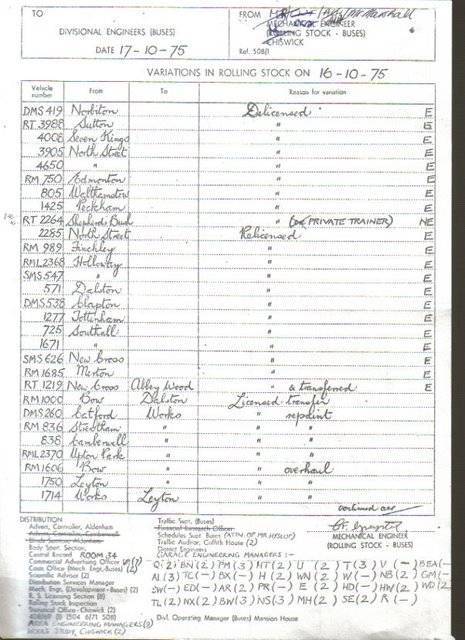 TO
DIVISIONAL ENGINEERS (BUSES)
DATE 17-10-75
FROM Marshall
MECHANICAL ENGINEER
(ROLLING STOCK - BUSES)
CHISWICK
Ref. 508/1
VARIATIONS IN ROLLING STOCK ON 16-10-75
Vehicle number From To Reason for variation
DMS 419 Norbiton Delicensed E
RT 3988 Sutton " E
4008 Seven Kings " E
3905 North Street " E
4650 " " E
RM 750 Edmonton " E
805 Walthamstow " E
1425 Peckham " E
RT 2264 Shepherds Bush " PRIVATE TRAINER) NE
2285 North Street Relicensed E
RM 989 Finchley " E
RML 2368 Holloway " E
SMS 547 " " E
571 Dalston " E
DMS 538 Clapton " E
1277 Tottenham " E
725 Southall " E
1671 " " E
SMS 626 New Cross " E
RM 1685 Merton " E
RT 1219 New Cross Abbey Wood " & transferred E
RM 1000 Bow Dalston Licensed transfer
DMS 260 Catford Works " repaint
RM 836 Streatham " " "
838 Camberwell " " "
RML 2370 Upton Park " " "
RM 1606 Bow " " overhaul
1750 Leyton " " "
1714 Works Leyton " "
continued over
MECHANICAL ENGINEER
(ROLLING STOCK - BUSES)
DISTRIBUTION
Adven, Controller, Aldenham
Body Shop Section,
Central Record ROOM 34
Commercial Advertising Officer
Costs Office (Mech. Engr.-Buses) (2)
Scientific Advisor (2)
Distribution Services Manager
Mech. Engr. (Development - Buses) (2)
R. S. Licensing Section (8)
Rolling Stock Inspection
Technical Office - Chiswick (2)
AREA ENGINEERING MANAGERS
WORKS STUDY, CHISWICK (2)
Traffic Supt. (Buses)
Financial Research Officer
Schedules Supt Buses (ATTN. OF MR. HYSLOP)
Traffic Auditor, Griffith House (2)
District Engineers
GARAGE ENGINEERING MANAGERS :-
Divl. Operating Manager (Buses) Mansion House